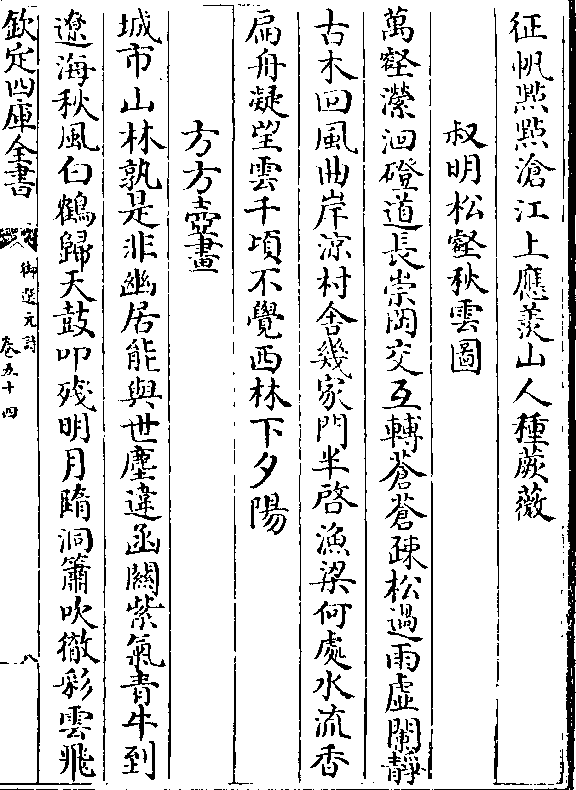 征帆㸃㸃滄江上應羡山人種蕨薇
叔明松壑秋雲圖
萬壑瀠洄磴道長崇岡交互轉蒼蒼疎松過雨虚闌靜
古木回風曲岸凉村舍幾家門半啓漁梁何處水流香
扁舟凝望雲千頃不覺西林下夕陽
方方壺畫
城市山林孰是非幽居能與世塵違函關紫氣青牛到
遼海秋風白鶴歸天鼓叩殘明月墮洞簫吹徹彩雲飛
欽定四庫全書
御選元詩
卷五十四
八